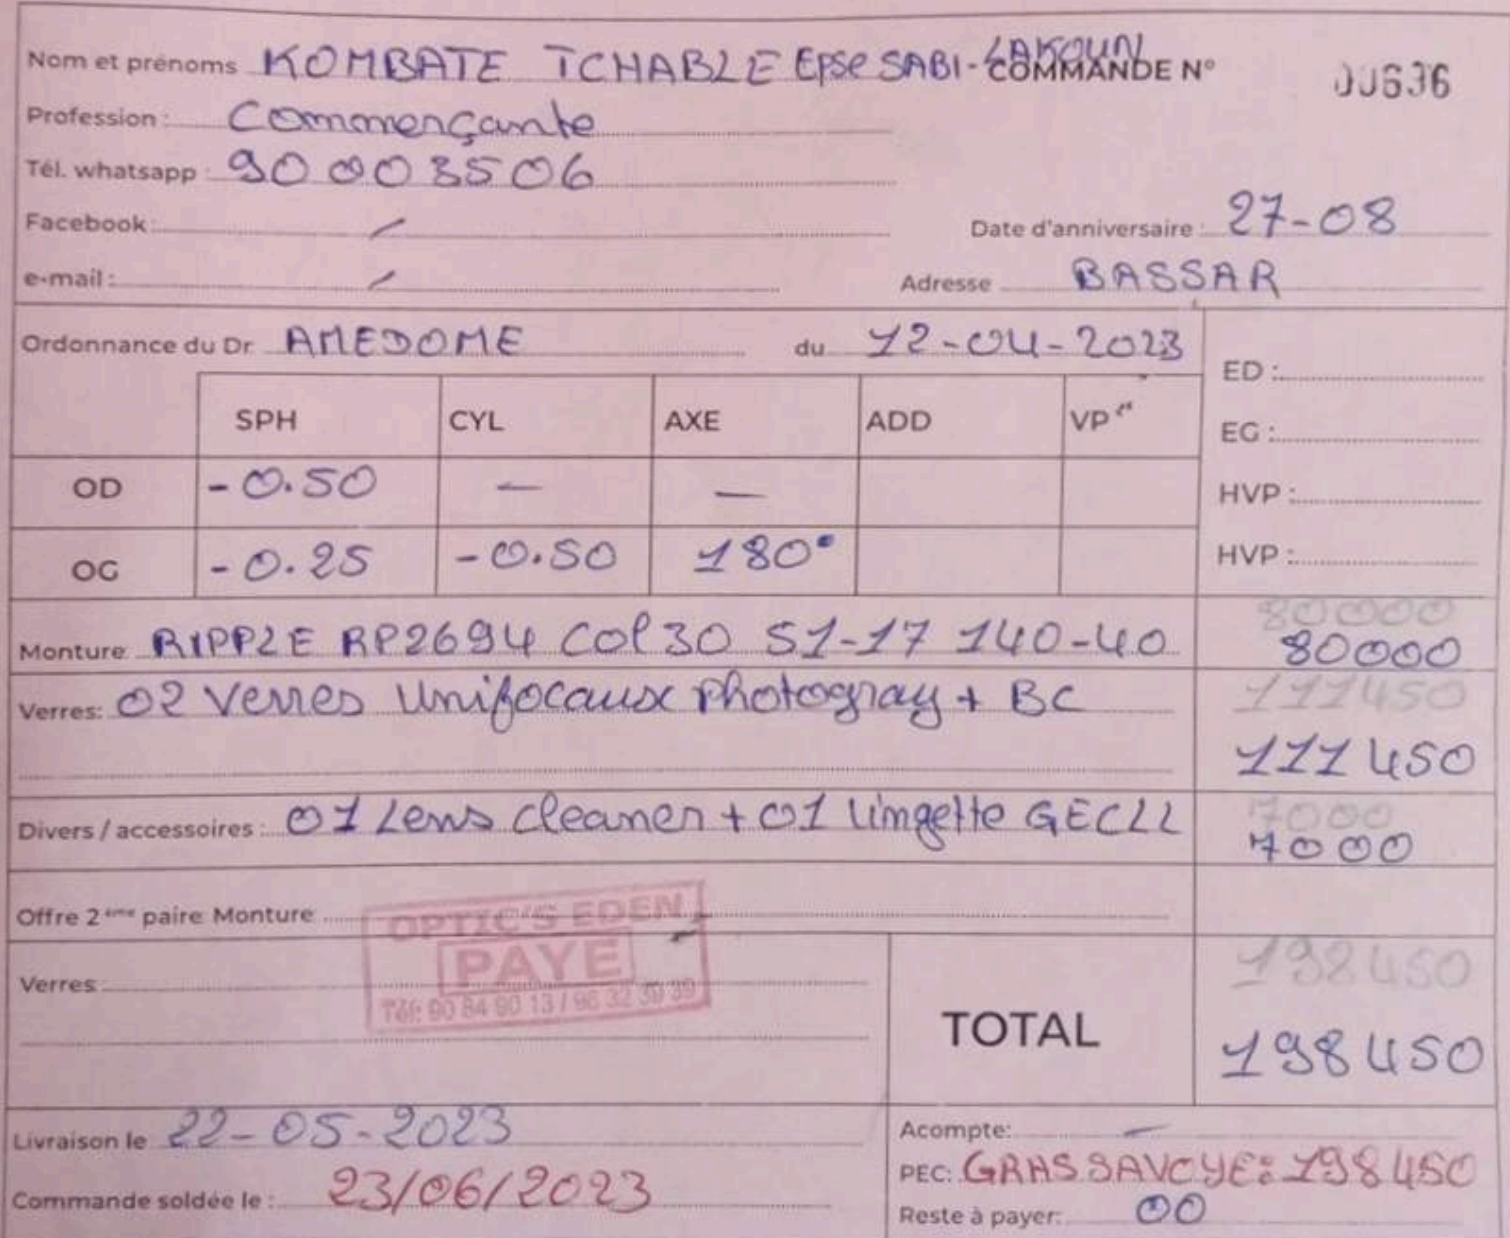 Nom et prénoms KOMBATE TCHABLE Epse SABI-LAKOUN COMMANDE N° 00636
Profession : Commerçante
Tél. whatsapp : 90003506
Facebook : /
Date d'anniversaire : 27-08
e-mail : /
Adresse BASSAR
Ordonnance du Dr AMEDOME du 12-04-2023
ED :
SPH CYL AXE ADD VP
EG :
OD -0.50 — —
HVP :
OG -0.25 -0.50 180°
HVP :
80000
Monture RIPPLE RP2694 Col 30 51-17 140-40 80000
Verres: 02 Verres Unifocaux Photogray + BC 111450
111450
Divers / accessoires : 01 Lens cleaner + 01 lingette GECLL 7000
7000
Offre 2ème paire Monture
OPTIC'S EDEN
PAYE
Tél: 90 84 90 13 / 96 32 39 39
Verres
TOTAL
198450
198450
Livraison le 22-05-2023
Acompte: —
PEC: GRAS SAVOYE: 198450
Commande soldée le : 23/06/2023
Reste à payer: 00